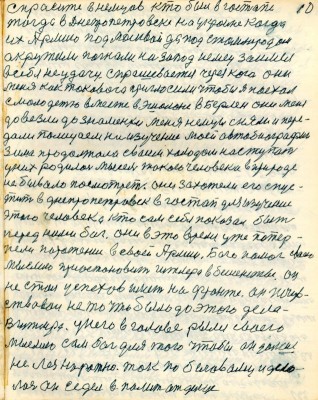 спросите в немцов кто был в гостях 10
тогда в днепропетровск на украине когда
их Армию под москвой да под сталинградом
окружили погнали на запад немец заимел
в себя неудачу спрашивается через кого они
меня как такового пригласили чтобы я поехал
с молодежью вместе в эшалоне в Берлен они меня
довезли до знаменки меня немцы сняли и пере-
дали полицаем на изучение моей автобиографии
зима продолжала своим холодом наступать
у них родилась мысль такого человека в природе
не бывало посмотреть. они захотели его спус-
тить в днепропетровск в гостап для изучение
этого человека, кто сам себя показал быть
перед ними бог. они в это время уже потер-
пели поражение в своей Армии, бог помог своею
мыслию приостановить гитлера в бешенстве, он
не стал успехов иметь на фронте. он
ствовал не то что было до этого дела
в гитлера. у него в голове рыли своею
мыслию сам бог для того чтобы он
не лая напротив. так по бывалому и дело
лося он сидел в политотделе